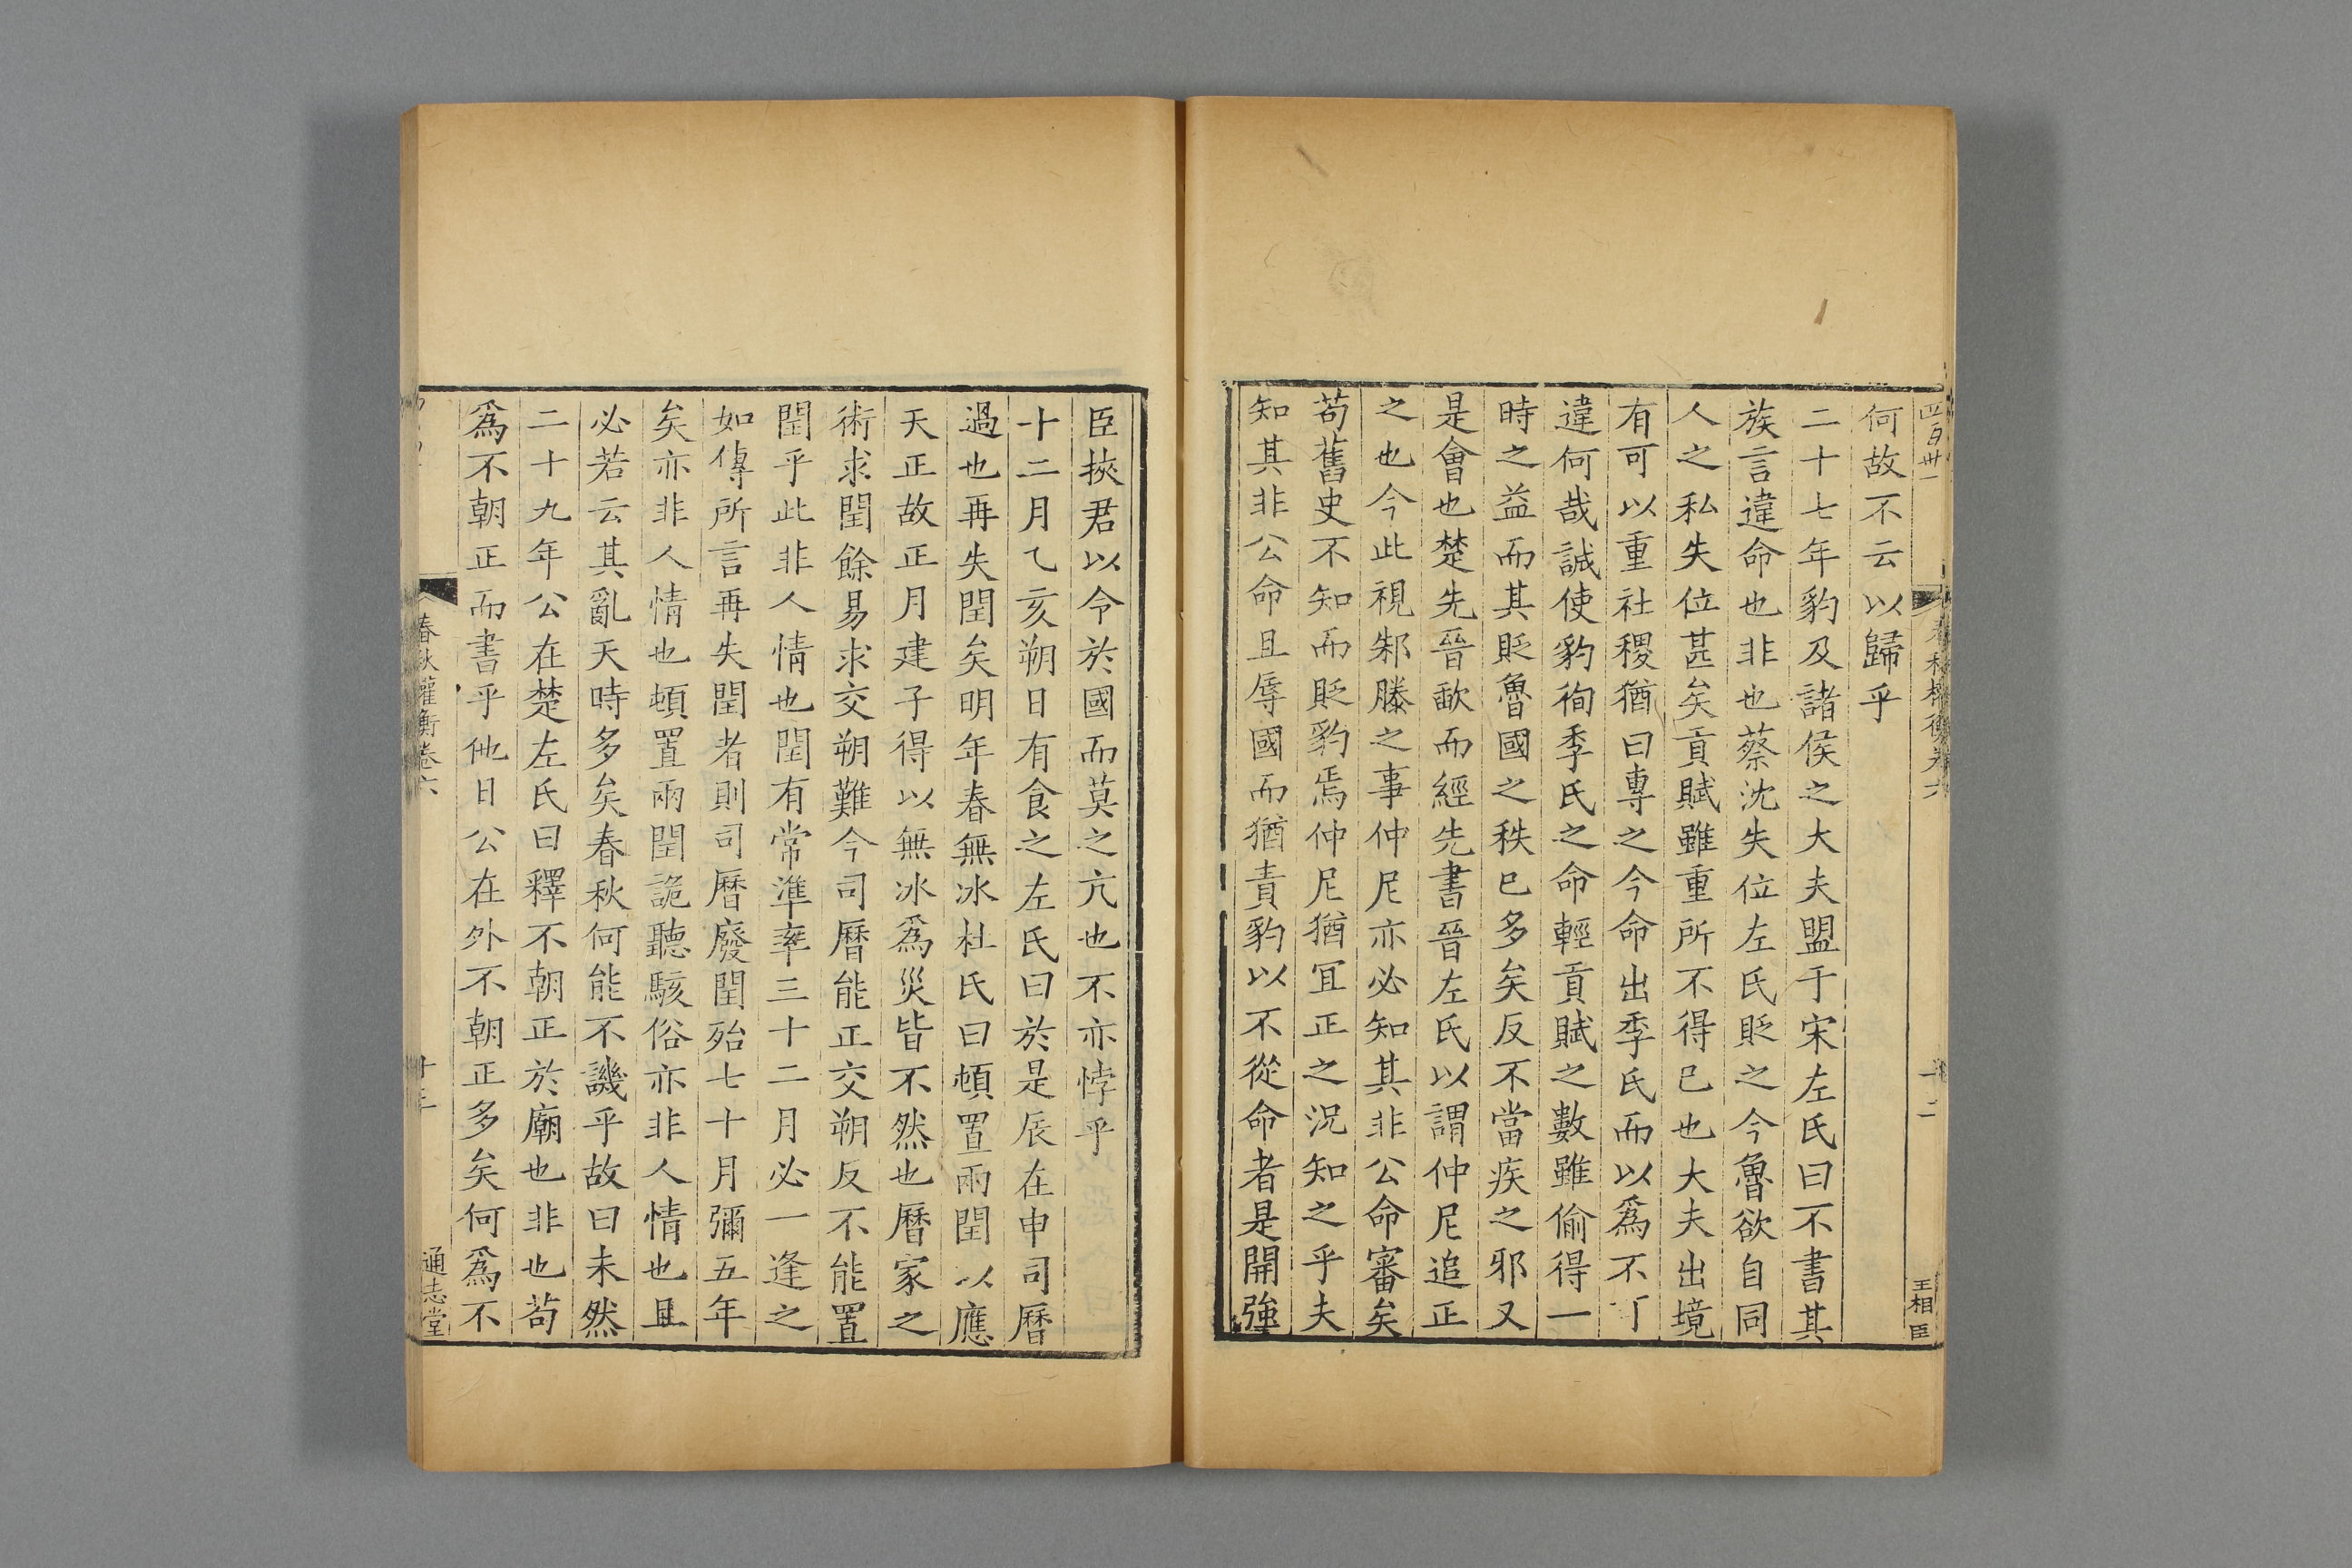 四百卅一
春秋權衡卷六
十二
王相臣
何故不云以歸乎
二十七年豹及諸侯之大夫盟于宋左氏曰不書其
族言違命也非也蔡沈失位左氏貶之今魯欲自同
人之私失位甚矣貢賦雖重所不得已也大夫出境
有可以重社稷猶曰專之今命出季氏而以為不
違何哉誠使豹徇季氏之命輕貢賦之數雖偷得一
時之益而其貶魯國之秩已多矣反不當疾之邪又
是會也楚先晉歃而經先書晉左氏以謂仲尼追正
之也今此視邾滕之事仲尼亦必知其非公命審矣
苟舊史不知而貶豹焉仲尼猶冝正之況知之乎夫
知其非公命且辱國而猶責豹以不從命者是開強
臣挾君以令於國而莫之亢也不亦悖乎
十二月乙亥朔日有食之左氏曰於是辰在申司曆
過也再失閏矣明年春無冰杜氏曰頓置兩閏以應
天正故正月建子得以無冰爲災皆不然也曆家之
術求閏餘易求交朔難今司曆能正交朔反不能置
閏乎此非人情也閏有常準率三十二月必一逢之
如傳所言再失閏者則司曆廢閏殆七十月彌五年
矣亦非人情也頓置兩閏詭聽駭俗亦非人情也且
必若云其亂天時多矣春秋何能不譏乎故曰未然
二十九年公在楚左氏曰釋不朝正於廟也非也苟
爲不朝正而書乎他日公在外不朝正多矣何爲不
春秋權衡卷六
十三
通志堂